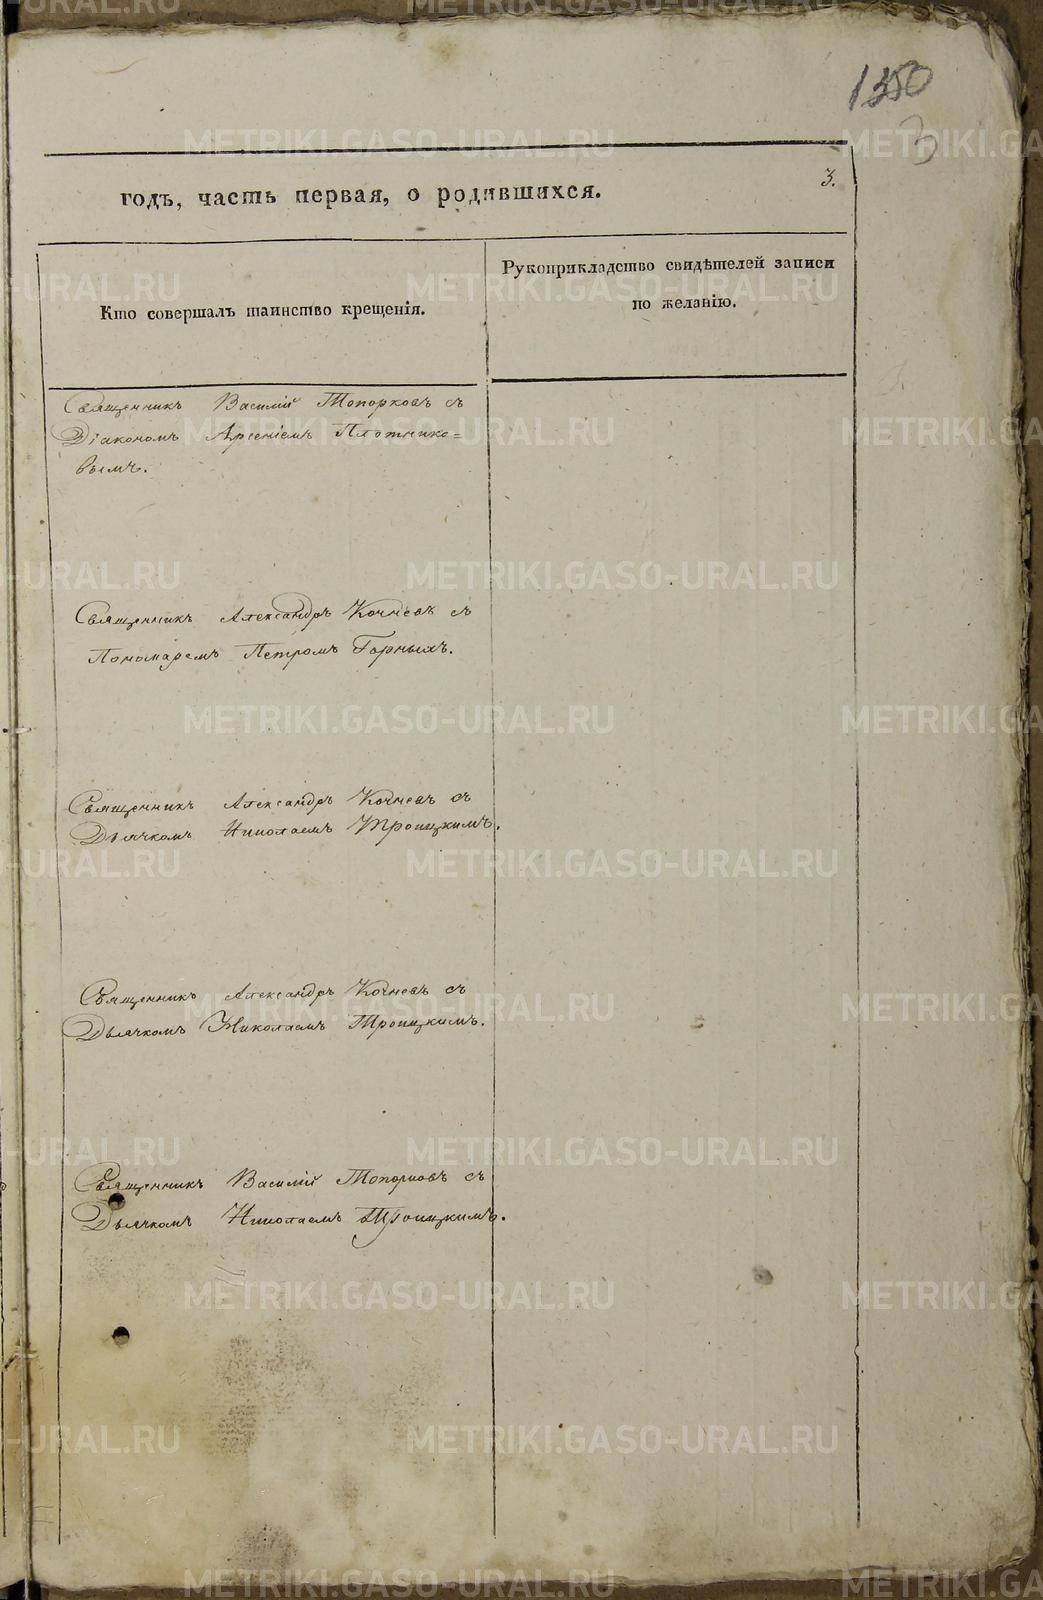 1350
3
3.
годъ, часть первая, о родившихся.
Кто совершалъ таинство крещенія.
Рукоприкладство свидѣтелей записи
по желанію.
Священникъ Василій Топорковъ съ
Діакономъ Арсеніемъ Плотнико=
вымъ.
Священникъ Александръ Кочневъ съ
Пономаремъ Петромъ Горныхъ.
Священникъ Александръ Кочневъ съ
Дьячкомъ Николаемъ Троицкимъ.
Священникъ Александръ Кочневъ съ
Дьячкомъ Николаемъ Троицкимъ.
Священникъ Василій Топорковъ съ
Дьячкомъ Николаемъ Троицкимъ.
METRIKI.GASO-URAL.RU